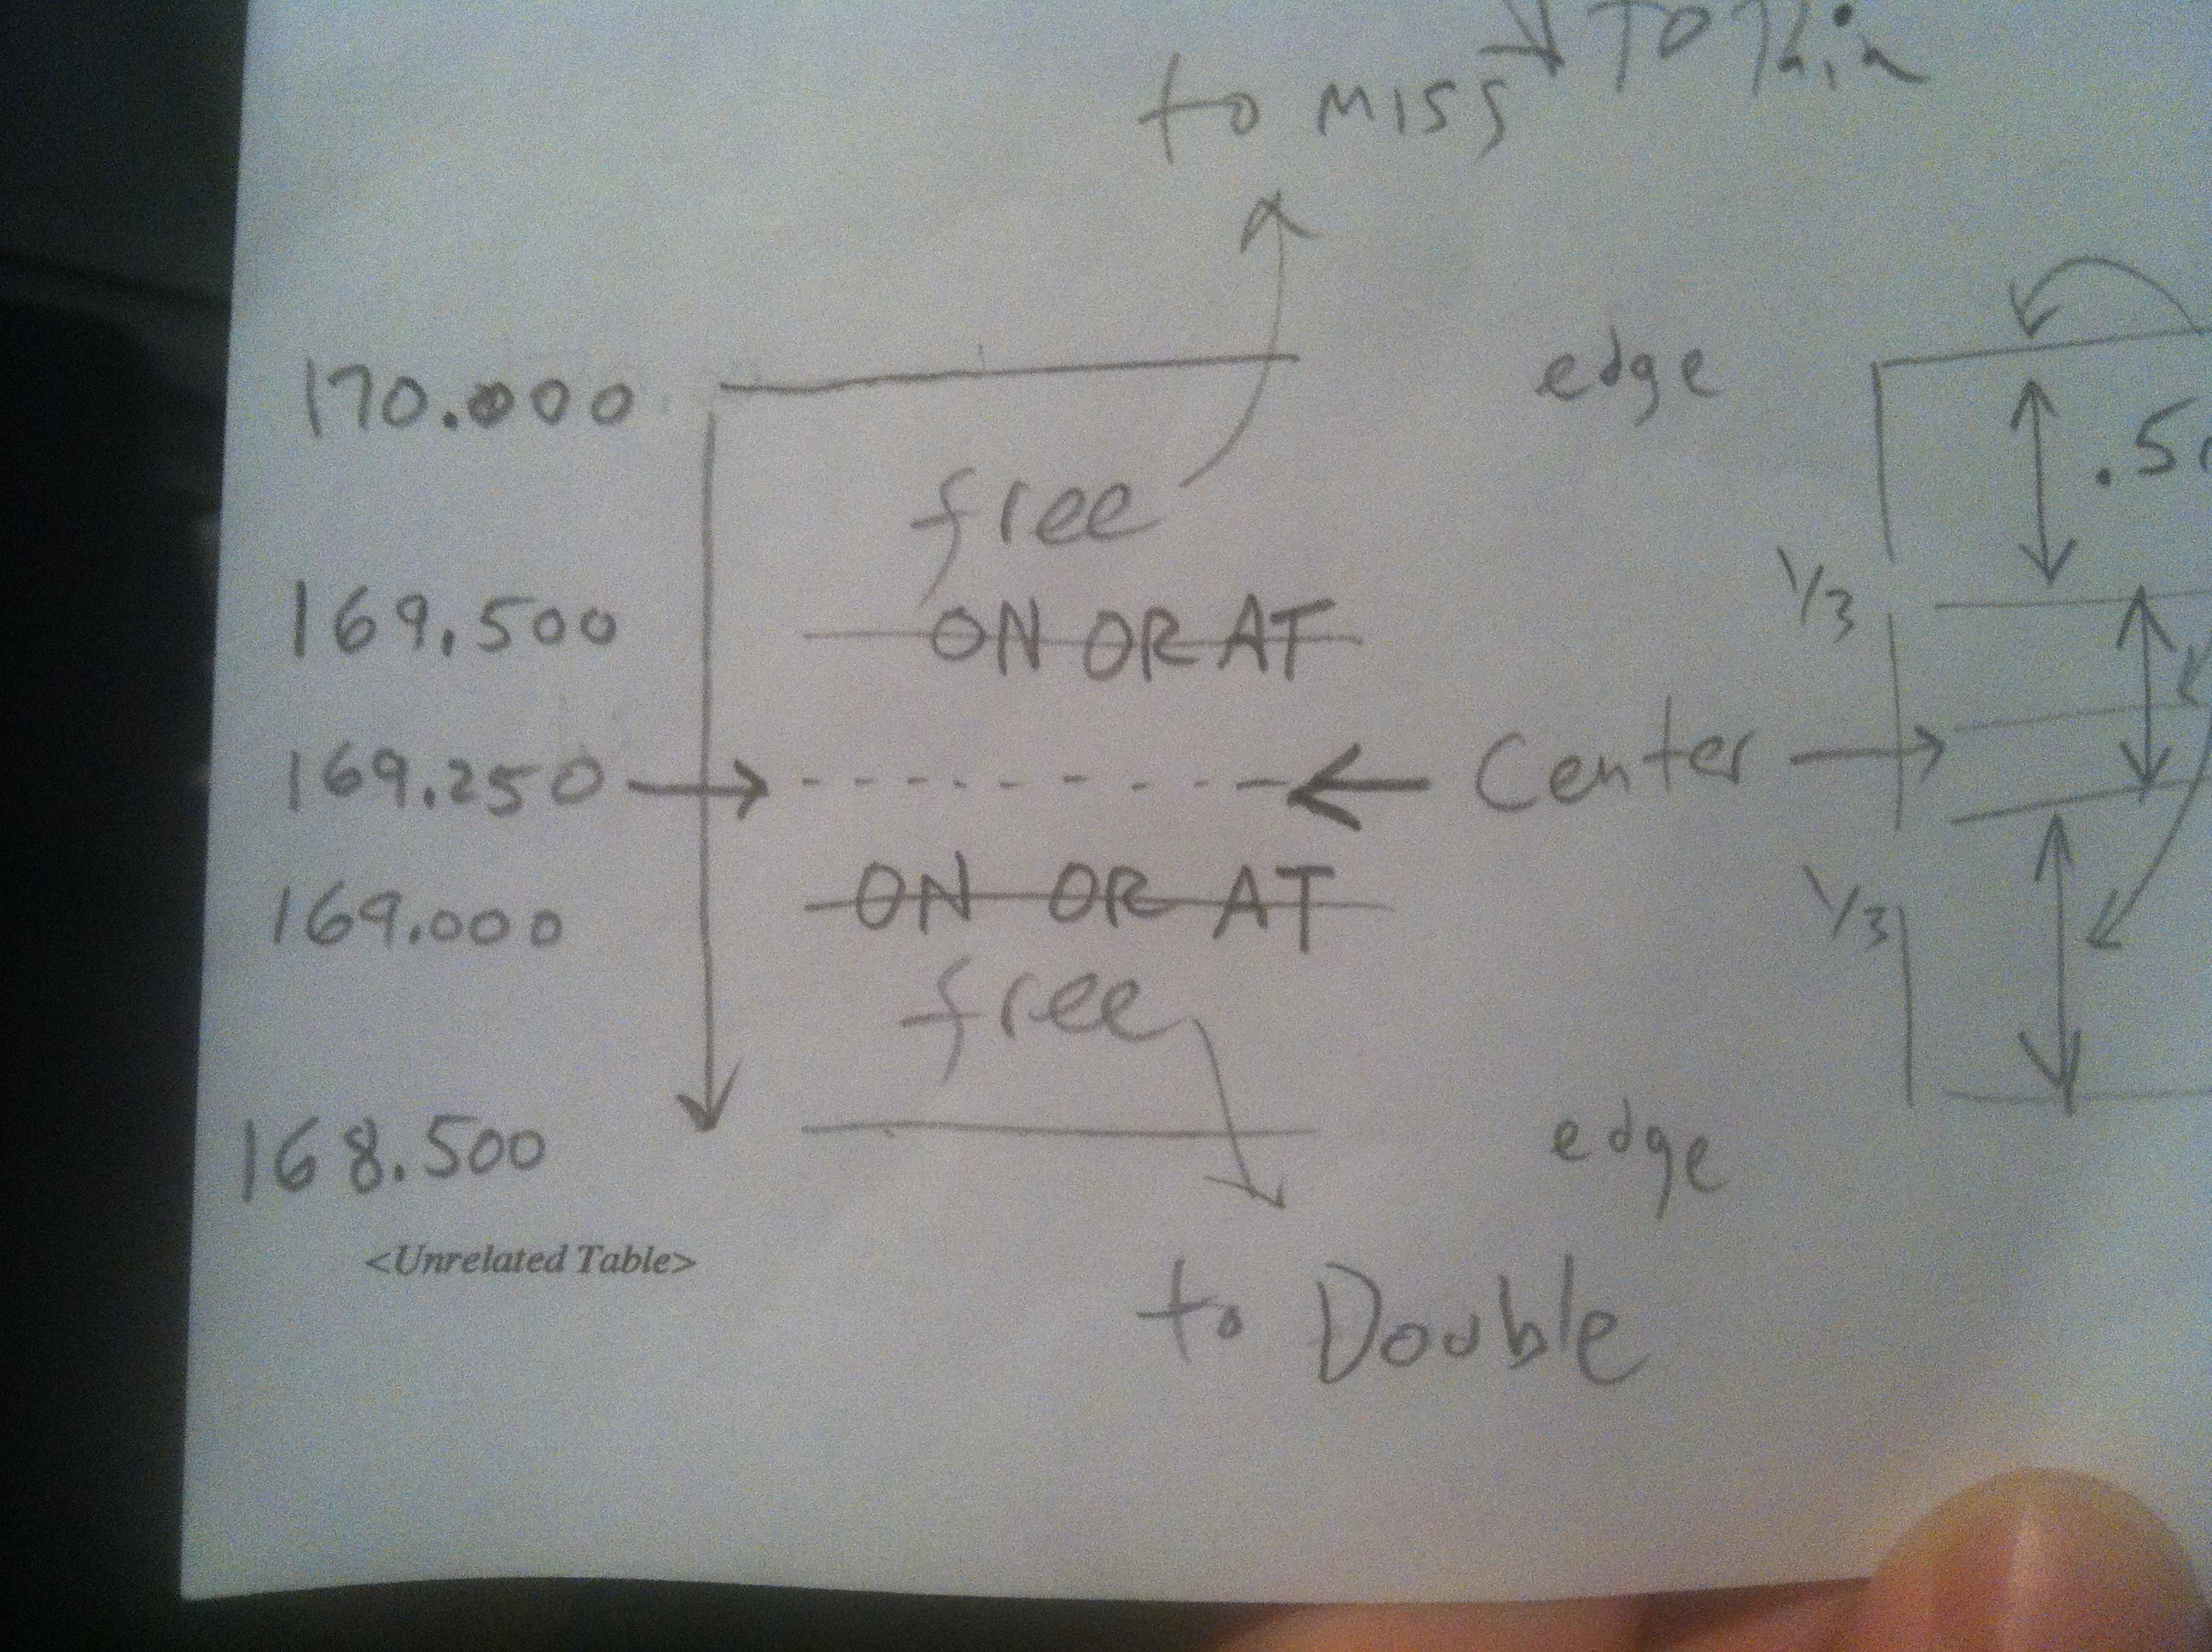 To Thin
to MISS
170.000 edge
free .5
1/3
169.500 ON OR AT
169.250 Center
169.000 ON OR AT
1/3
free
168.500 edge
<Unrelated Table>
to Double